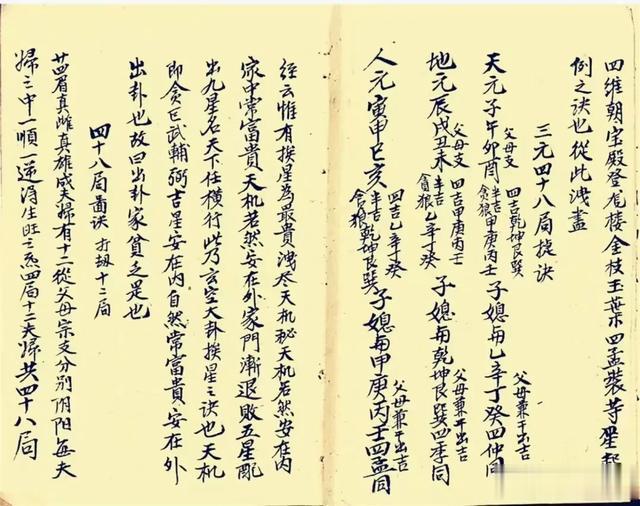 四维朝宝殿登危楼金枝玉葉四孟装等星
例之诀也從此洩盡
三元四十八局捉訣
天元子午卯酉 父母支 四吉乾坤艮巽 半吉甲庚丙壬 貪狼 子媳每乙辛丁癸四仲同 父母兼干出吉
地元辰戌丑未 父母支 四吉甲庚丙壬 半吉乙辛丁癸 貪狼 子媳每乾坤艮巽四季同 父母兼干出吉
人元寅申巳亥 四吉乙辛丁癸 半吉乾坤艮巽 貪狼 子媳每甲庚丙壬四孟同 父母兼干出吉
經云惟有挨星為最貴洩尽天机秘天机若然安在内
家中常富貴天机若然安在外家門漸退敗五星配
出九星名天下任横行此乃玄空大卦挨星之诀也天机
即貪巨武輔弼吉星安在内自然常富貴安在外
出卦也故曰出卦家貧乏是也
四十八局啚诀 打劫十三局
廿四看真雌真雄成夫婦有十二從父母宗支分别阴阳每夫
婦三中一順一逆得生旺三炁四局十二夫婦共四十八局